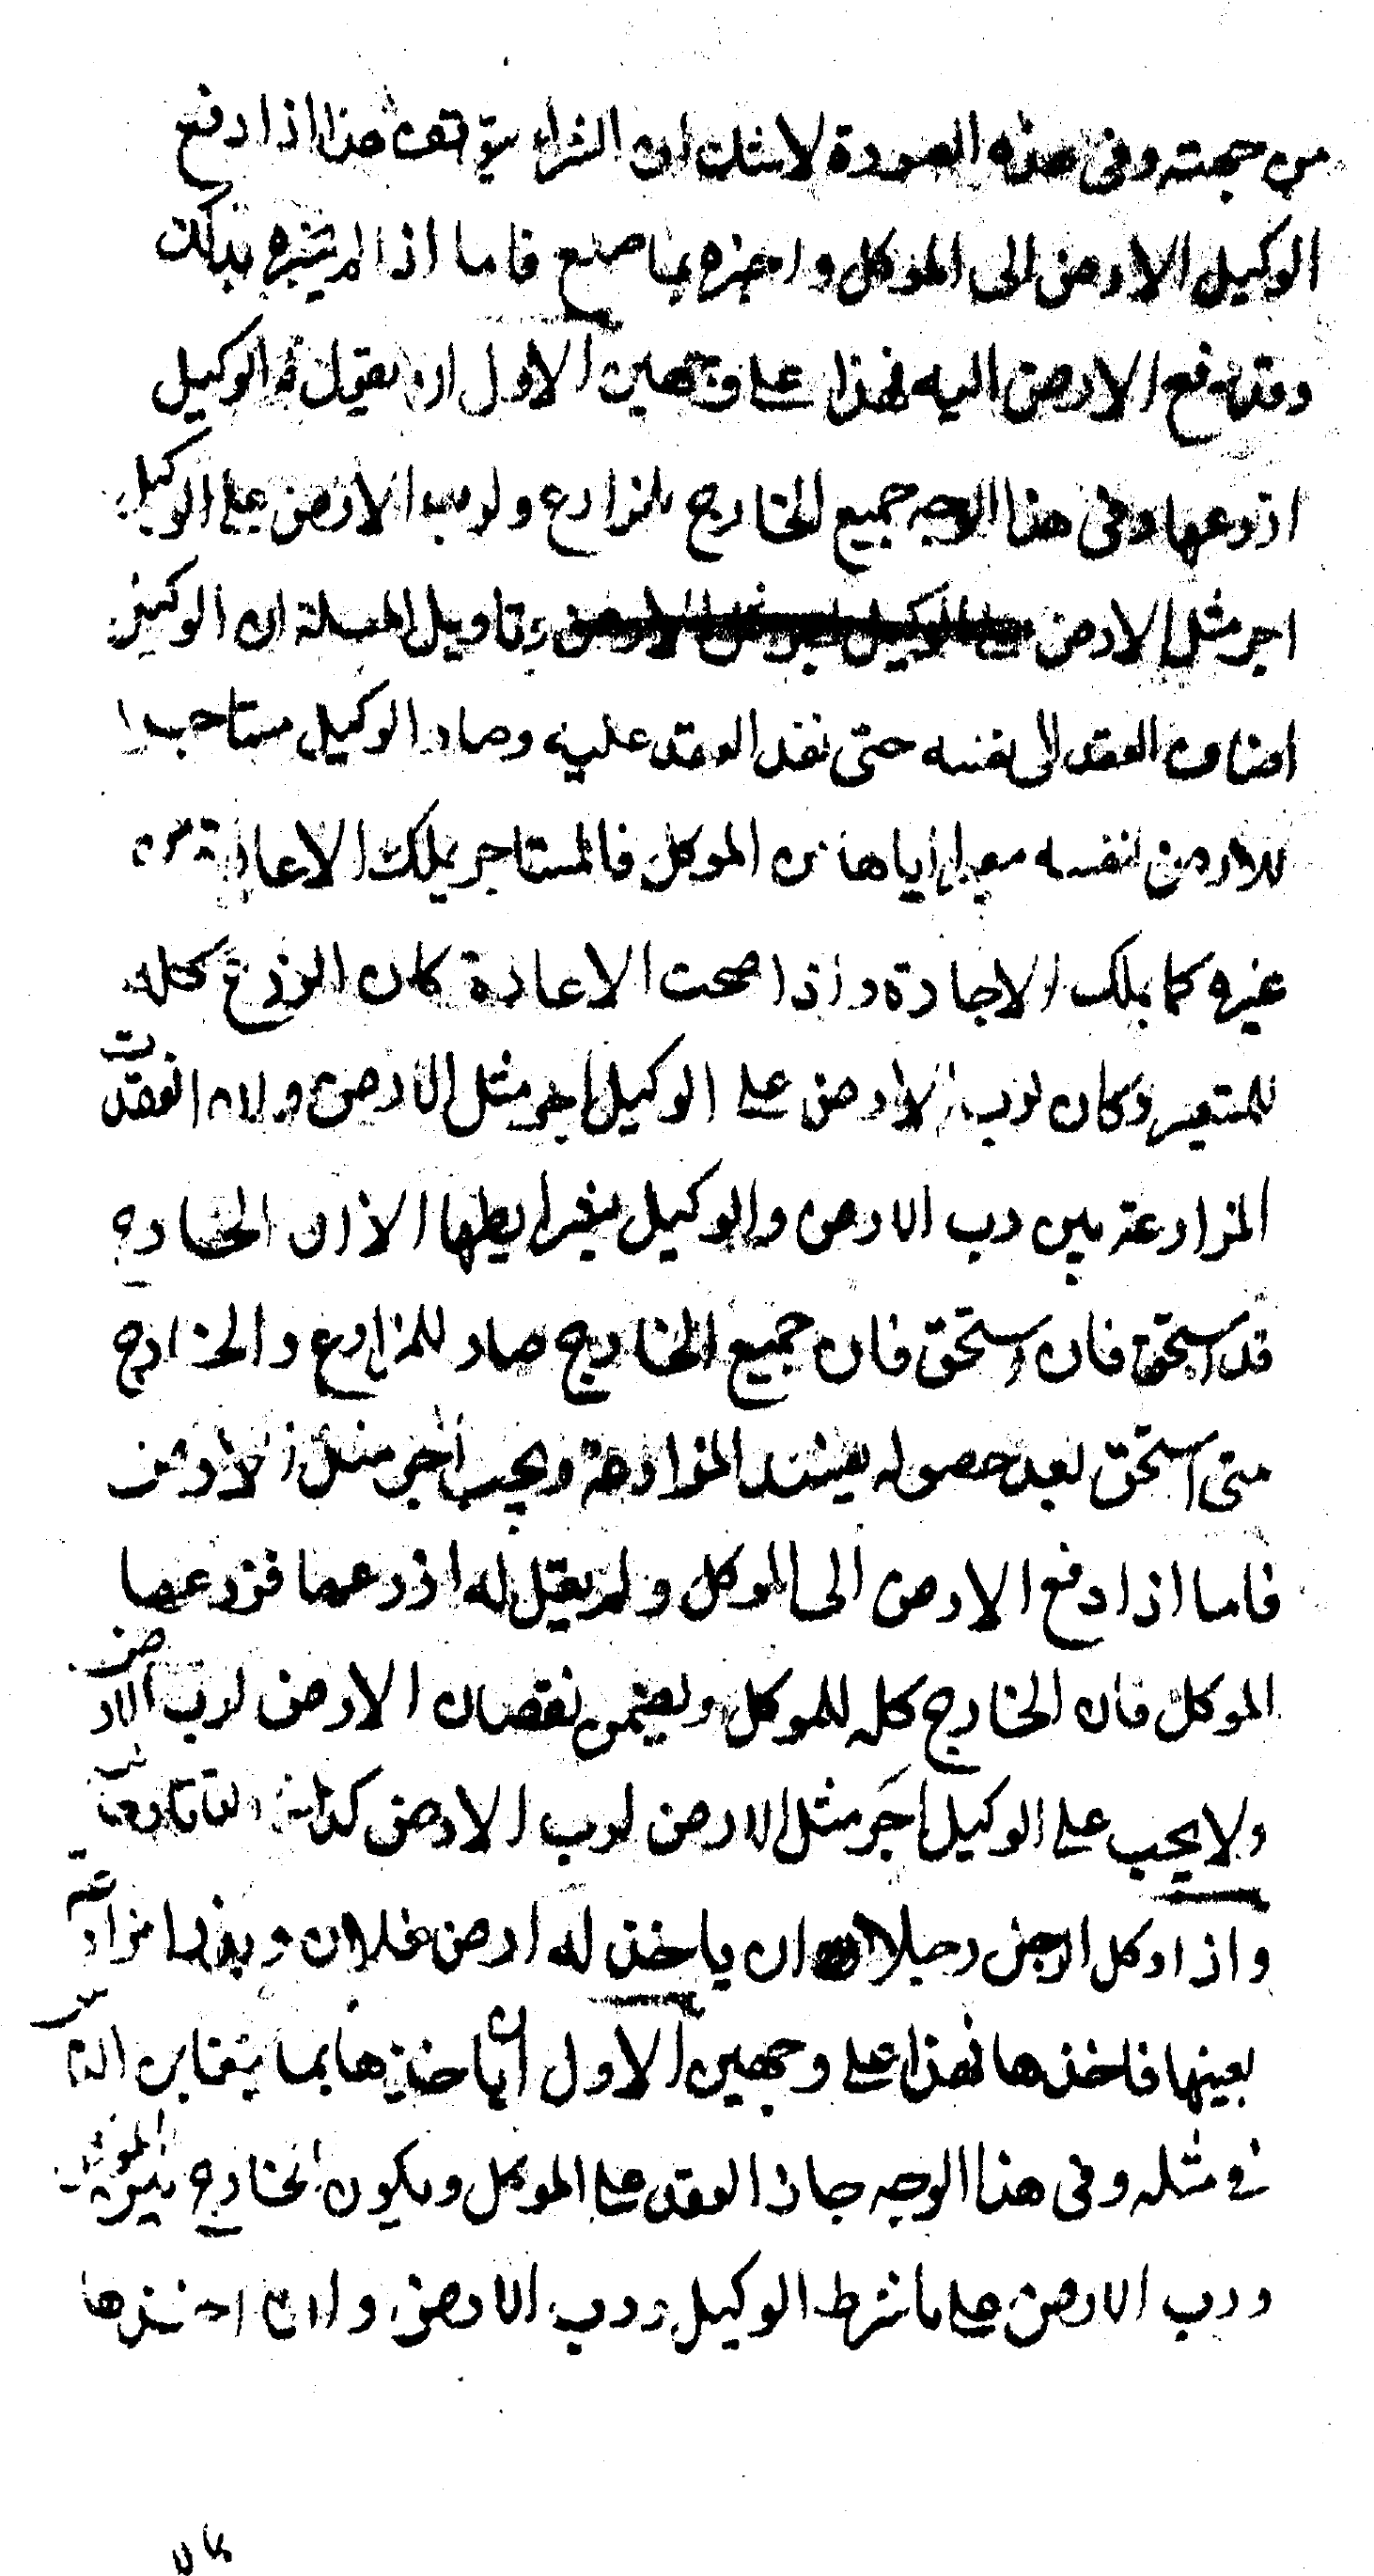 من جهته وفى هذه الصورة لاشك ان الشراء يتوقف هذا اذا دفع
الوكيل الارض الى الموكل واخبره بما صنع فاما اذا لم يخبره بذلك
وقد دفع الارض اليه فهذا على وجهين الاول ان يقول له الوكيل
ازرعها وفى هذا الوجه جميع الخارج للزارع ولرب الارض على الوكيل
اجر مثل الارض وتاويل المسئلة ان الوكيل
اضاف العقد الى نفسه حتى نفذ العقد عليه وصار الوكيل مستاجرا
للارض لنفسه معيرا اياها من الموكل فالمستاجر يملك الاعارة من
غيره كما يملك الاجارة واذا صحت الاعارة كان الزرع كله
للمستعير وكان لرب الارض على الوكيل اجر مثل الارض ولان انعقدت
المزارعة بين رب الارض والوكيل بشرايطها الا ان الخارج
قد استحق فان استحق فان جميع الخارج صار للمزارع والخارج
متى استحق بعد حصوله يفسد المزارعة ويجب اجر مثل الارض
فاما اذا دفع الارض الى الموكل ولم يقل له ازرعها فزرعها
الموكل فان الخارج كله للموكل ويضمن نقصان الارض لرب الارض
ولا يجب على الوكيل اجر مثل الارض لرب الارض كذا
واذا وكل الرجل رجلا ان ياخذ له ارض فلان مزارعة
بعينها فاخذها فهذا على وجهين الاول ان ياخذها بما يتغابن الناس
فى مثله وفى هذا الوجه جاز العقد على الموكل ويكون الخارج بين الموكل
ورب الارض على ما شرط الوكيل ورب الارض وان اخذها